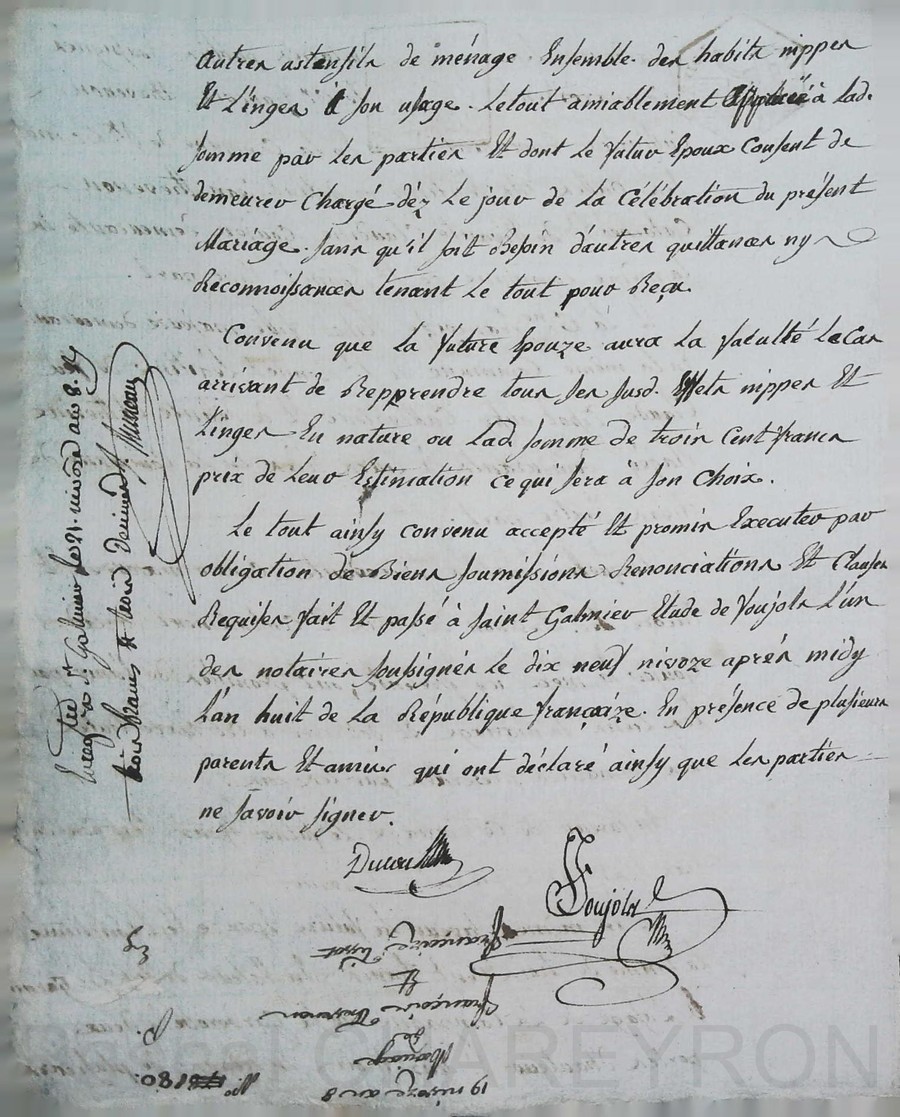 autres astensils de ménage. Ensemble des habits nippes
Et Linges à son usage. Le tout amiablement à Lad.
somme par les parties Et dont Le futur Epoux Consent de
demeurer Chargé déz Le jour de La Célébration du présent
Mariage. sans qu'il soit Besoin d'autres quittances ny
Reconnoissances tenant Le tout pour Reçu.
Convenu que La future Epouze aura La faculté Le Cas
arrivant de Repprendre tous ses susd. Effets nippes Et
Linges En nature ou Lad. somme de trois Cent francs
prix de Leur Estimation ce qui sera à son Choix.
Le tout ainsy convenu accepté Et promis Executer par
obligation de Biens soumissions Renonciations Et Clauses
Requises fait Et passé à Saint Galmier Etude de Foujols L'un
des notaires soussignés Le dix neuf nivoze aprés midy
L'an huit de La République françaize. En présence de plusieurs
parents Et amis qui ont déclaré ainsy que Les parties
ne savoir signer.
Foujols
Enregistré à St. Galmier le 21 nivose an 8.
trois francs
19 nivoze an 8
Mariage
de
françois
Et
françoise Tissot
No. 80